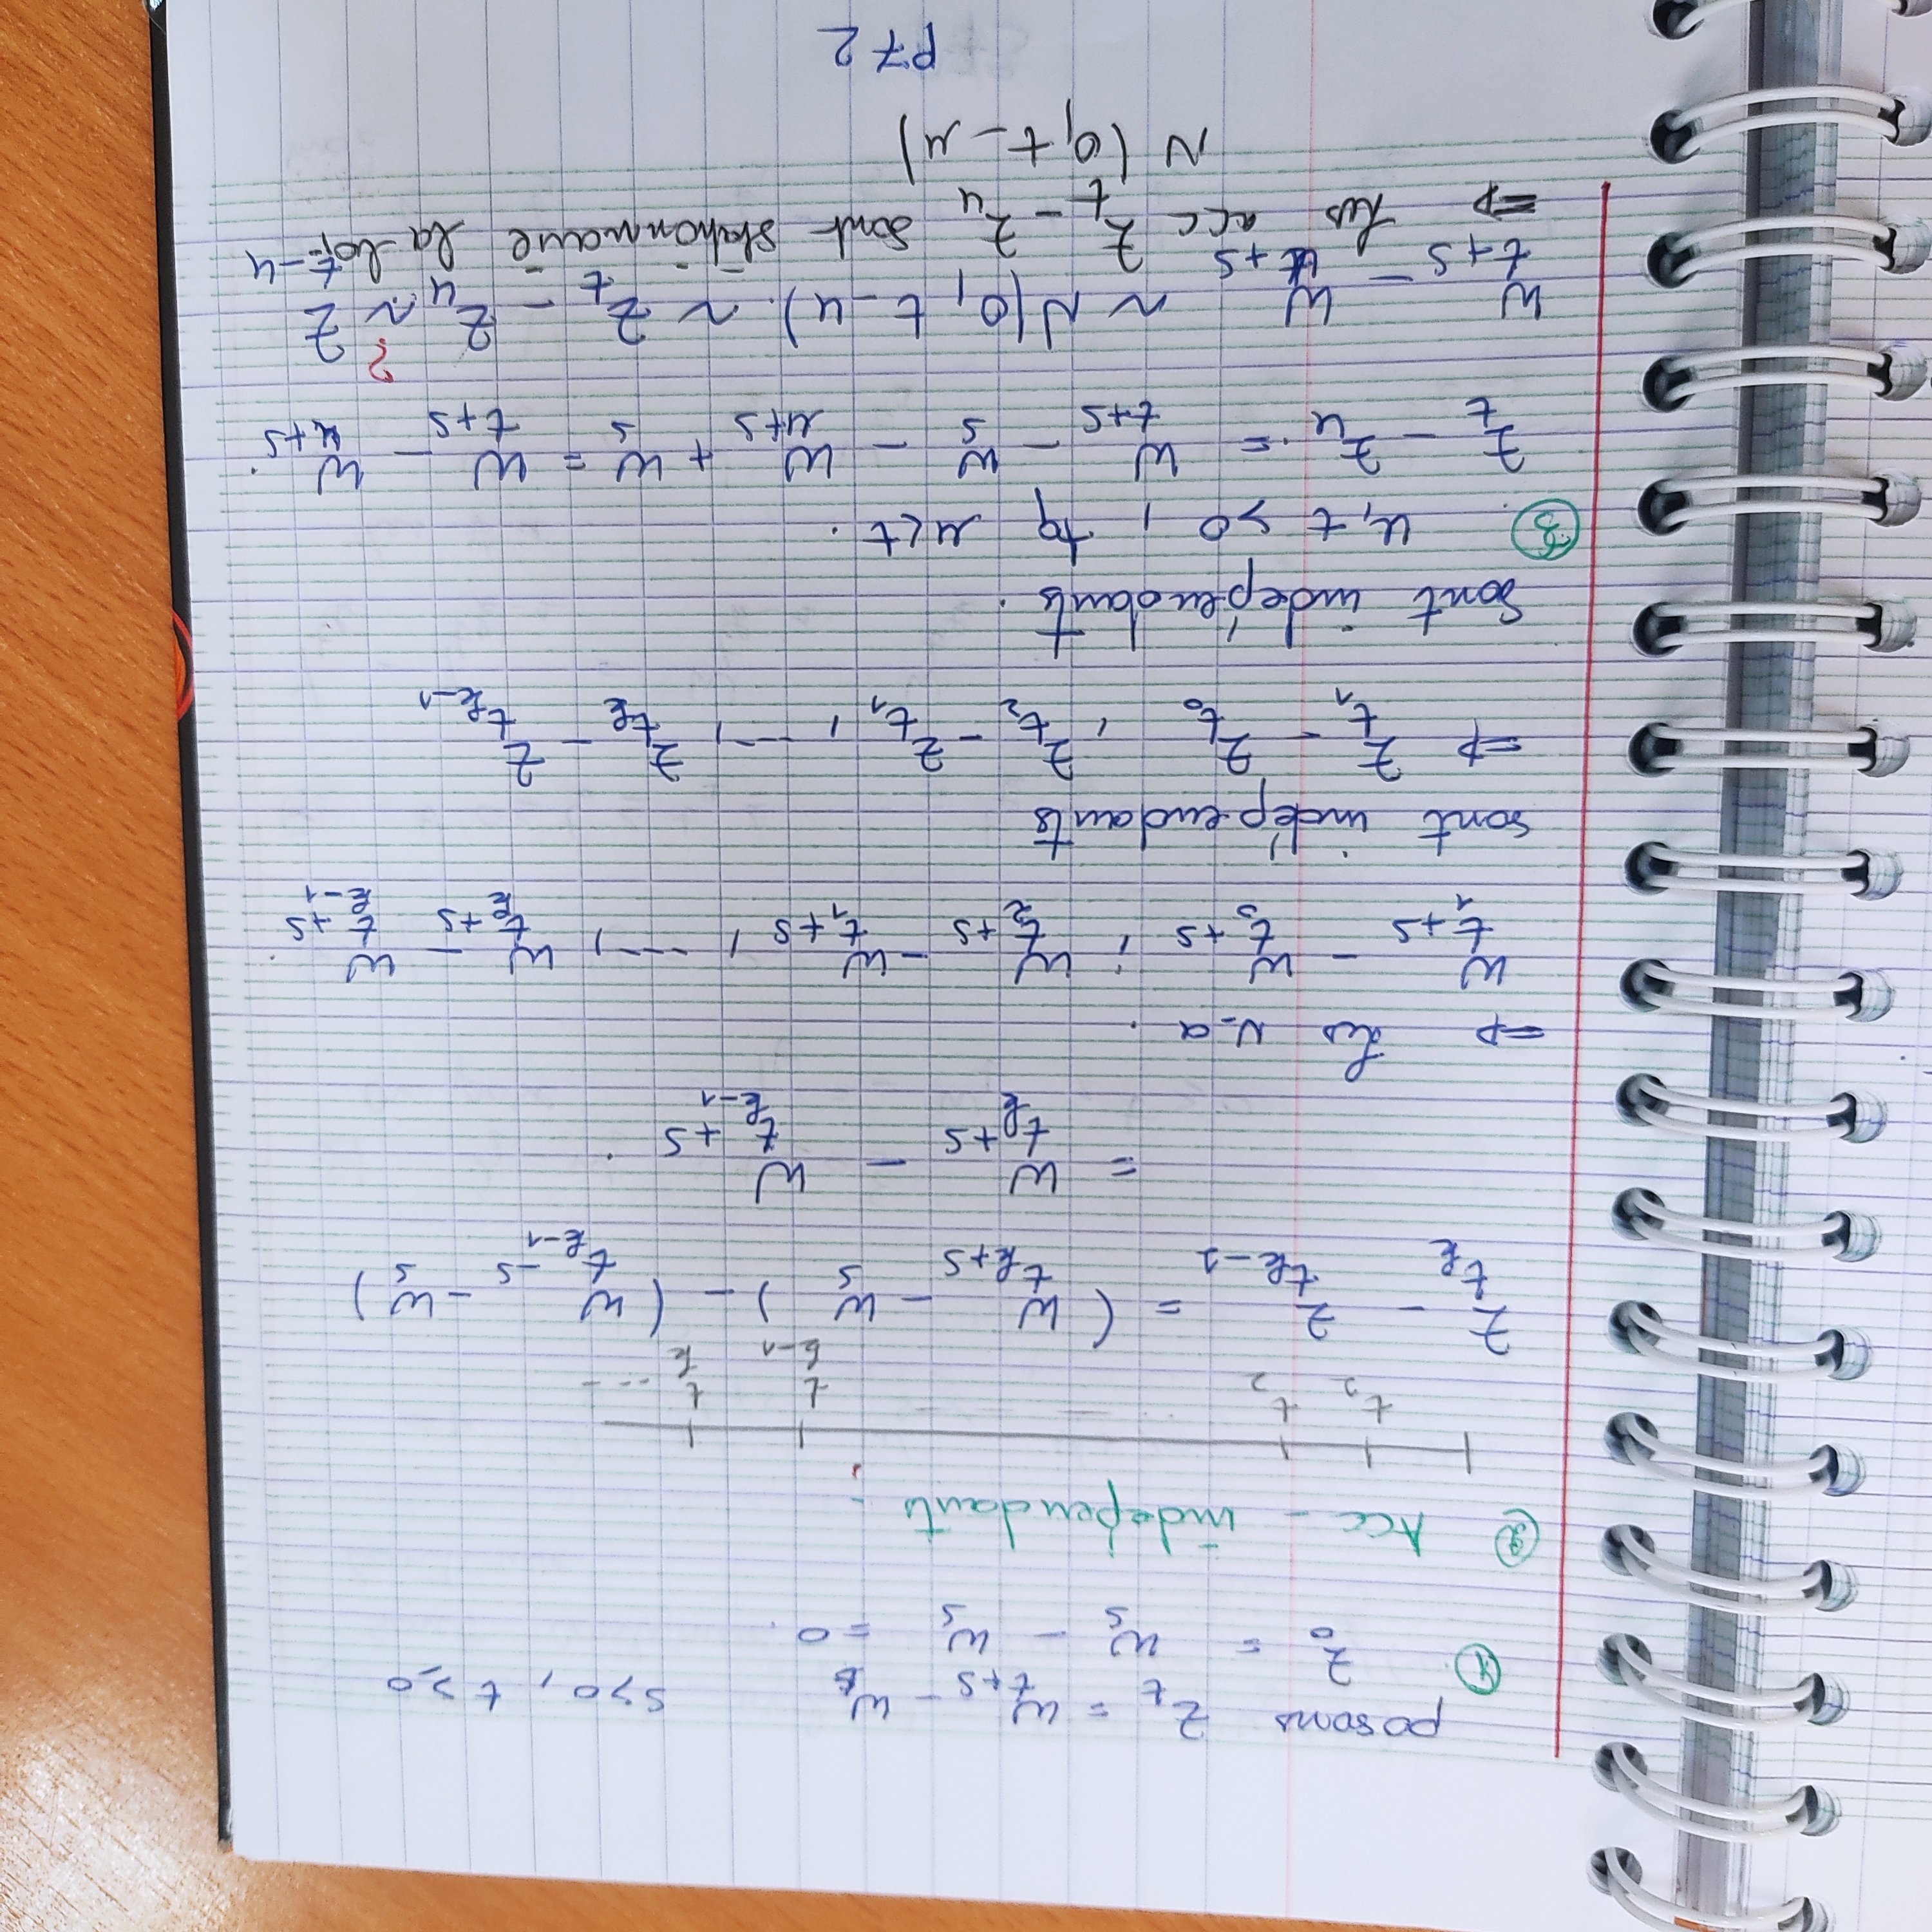 posons Z_t = W_{t+s} - W_s s>0, t≥0
① Z_0 = W_s - W_s = 0.
② Acc - indépendants.
t_2 t_2 t_{k-1} t_k ---
Z_{t_k} - Z_{t_{k-1}} = (W_{t_k+s} - W_s) - (W_{t_{k-1}-s} - W_s)
= W_{t_k+s} - W_{t_{k-1}+s}.
=> Les v-a.
W_{t_1+s} - W_{t_0+s} ; W_{t_2+s} - W_{t_1+s}, ---, W_{t_k+s} - W_{t_{k-1}+s}.
sont indépendants
=> Z_{t_1} - Z_{t_0}, Z_{t_2} - Z_{t_1}, ---, Z_{t_k} - Z_{t_{k-1}}
sont indépendants.
③. u, t >0, tq u<t.
Z_t - Z_u = W_{t+s} - W_s - W_{u+s} + W_s = W_{t+s} - W_{u+s}.
W_{t+s} - W_{u+s} ~ N(0, t-u). ~ Z_t - Z_u ?~ Z_{t-u}
=> Les acc Z_t - Z_u sont stationnaire la loi
N(0, t-u)
P72